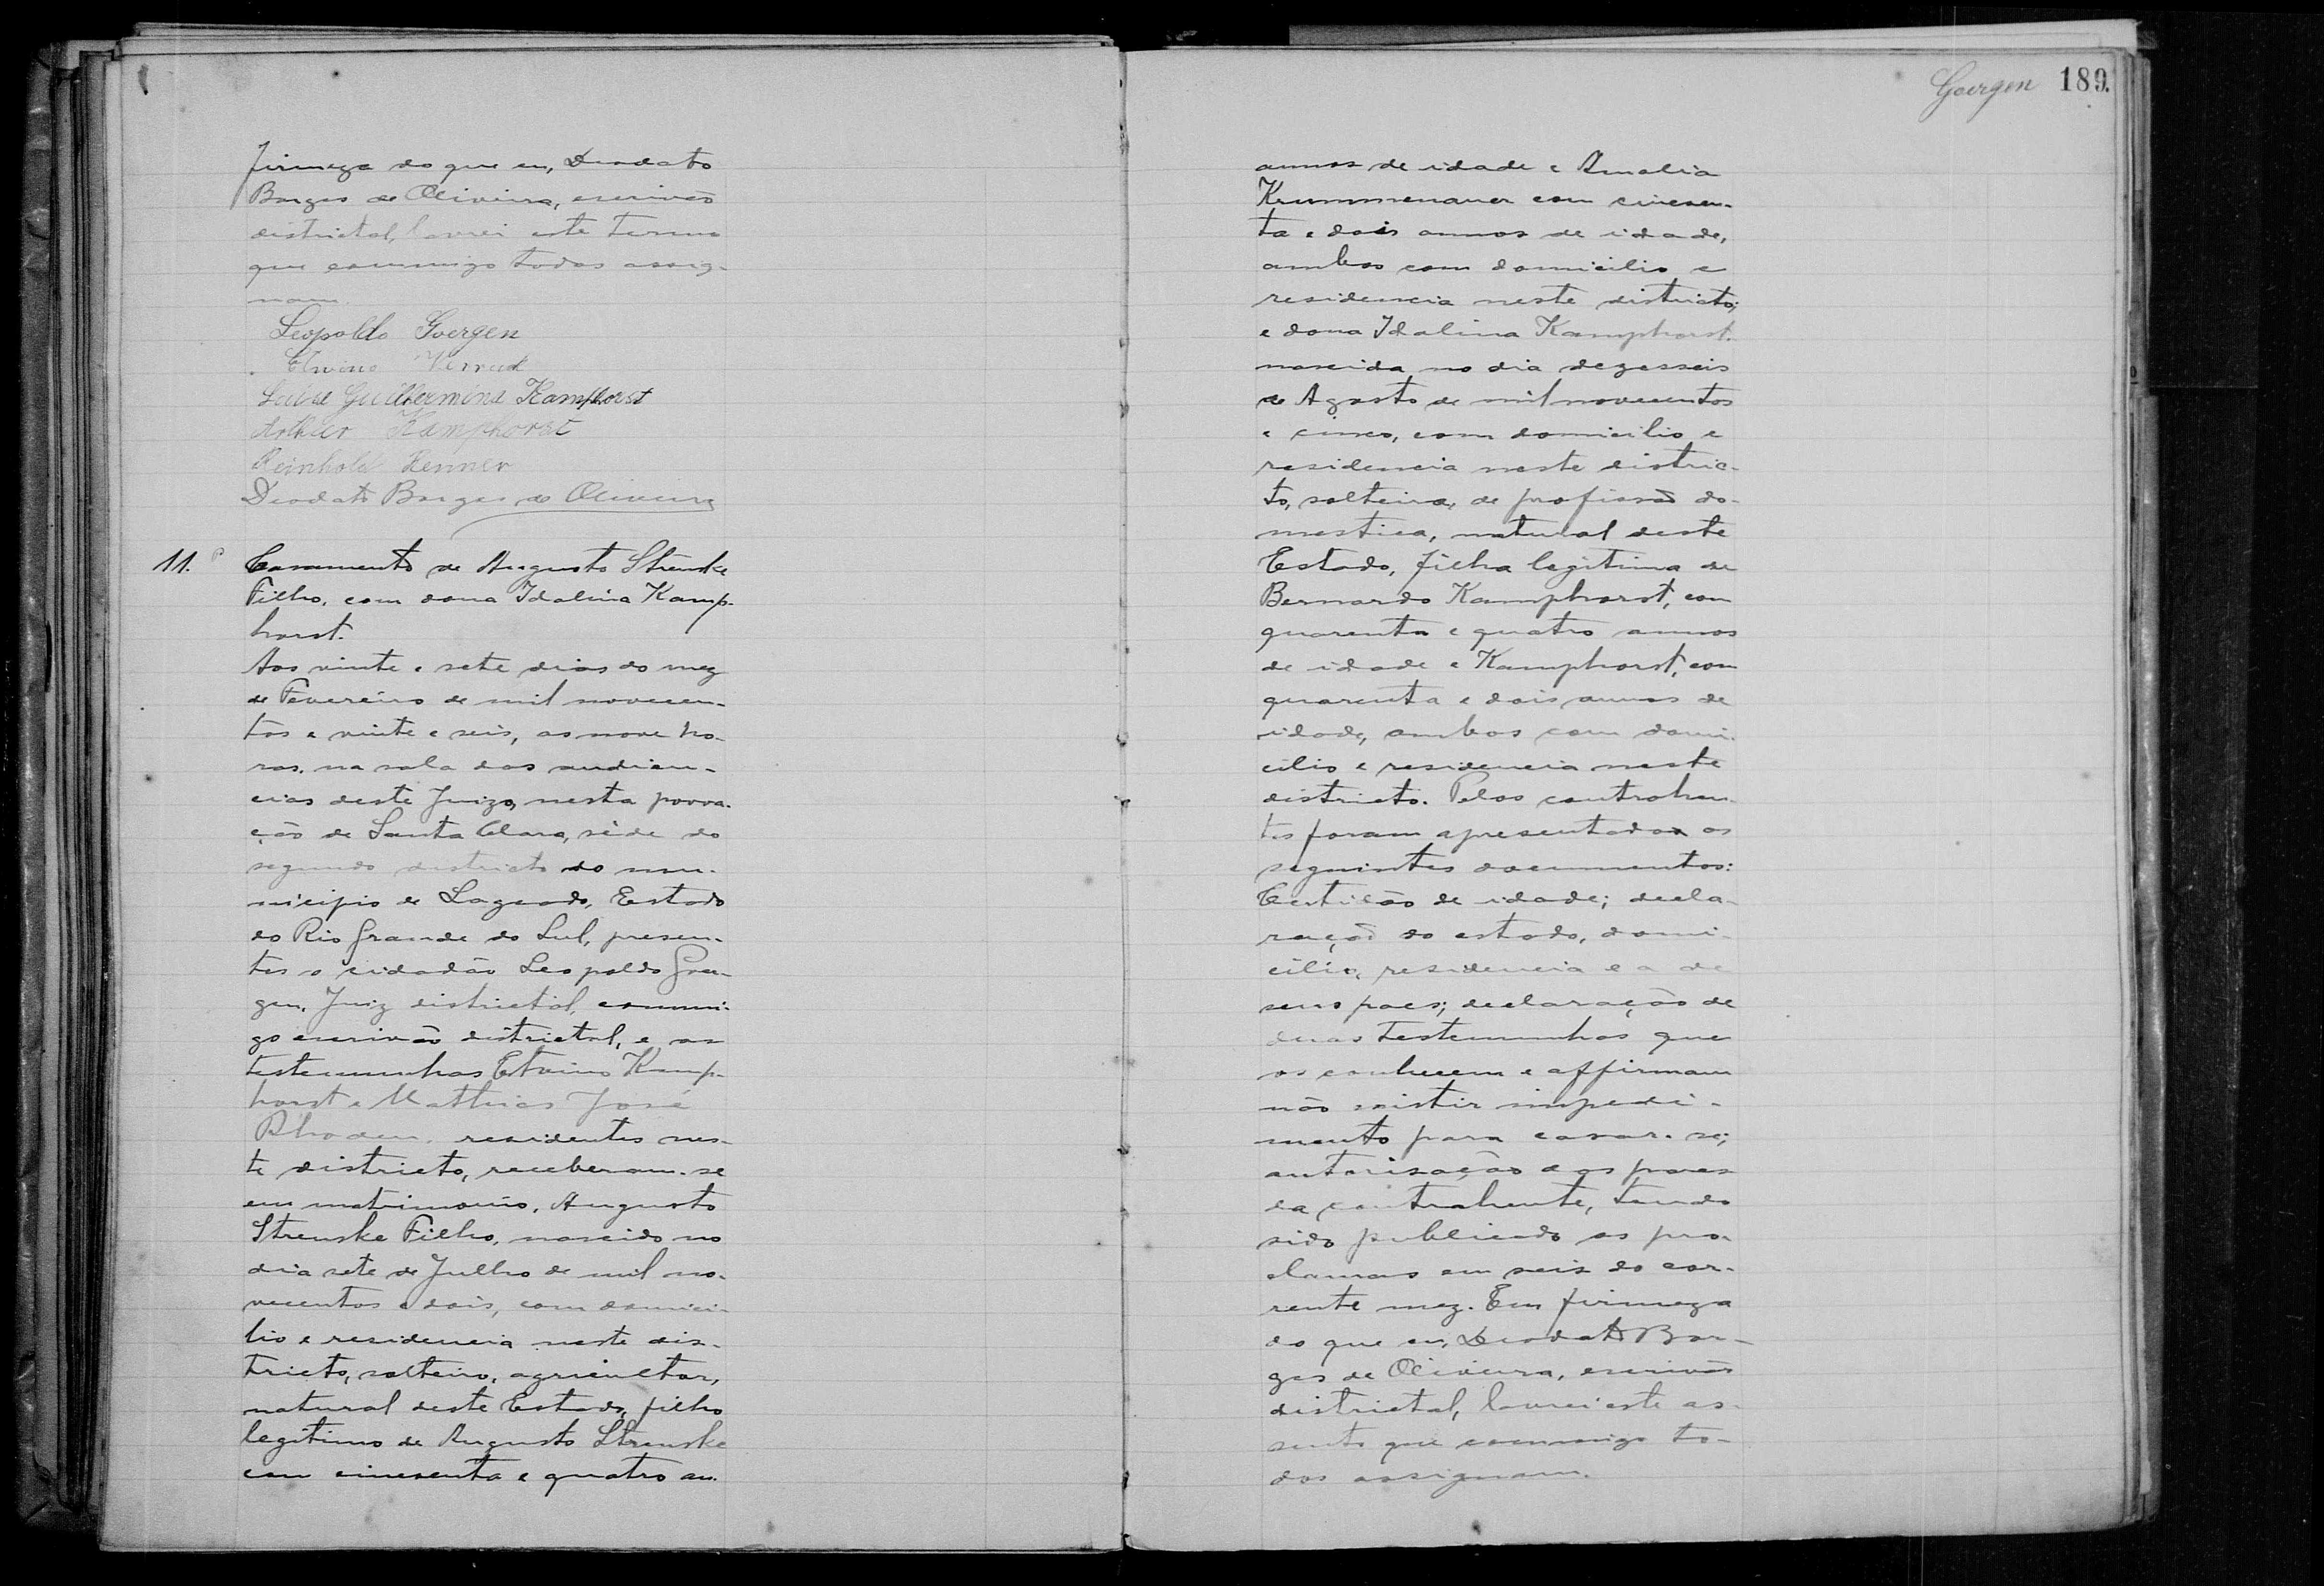 firmeza do que eu, Deodato
Borges de Oliveira, escrivão
districtal, lavrei este termo
que commigo todos assig-
nam.
Leopoldo Goergen
Guilhermina Kamphorst
Arthur Kamphorst
Reinhold Renner
Deodato Borges de Oliveira
11.
Casamento de Augusto Strenske
Filho, com dona Idalina Kamp-
horst.
Aos vinte e sete dias do mez
de Fevereiro de mil novecen-
tos e vinte e seis, as nove ho-
ras, na sala das audien-
cias deste Juizo, nesta povoa-
ção de Santa Clara, séde do
segundo districto do mu-
nicipio de Lageado, Estado
do Rio Grande do Sul, presen-
tes o cidadão Leopoldo Goer-
gen, Juiz districtal, commi-
go escrivão districtal, e as
testemunhas Etvino Kamp-
horst e Mathias José
Rhoden, residentes nes-
te districto, receberam-se
em matrimonio, Augusto
Strenske Filho, nascido no
dia sete de Julho de mil no-
vecentos e dois, com domici-
lio e residencia neste dis-
tricto, solteiro, agricultor,
natural deste Estado, filho
legitimo de Augusto Strenske
com cincoenta e quatro an-
Goergen 189.
annos de idade e Amalia
Krummenauer com cincoen-
ta e dois annos de idade,
ambos com domicilio e
residencia neste districto;
e dona Idalina Kamphorst,
nascida no dia dezesseis
de Agosto de mil novecentos
e cinco, com domicilio e
residencia neste distric-
to, solteira, de profissão do-
mestica, natural deste
Estado, filha legitima de
Bernardo Kamphorst, com
quarenta e quatro annos
de idade e Kamphorst, com
quarenta e dois annos de
idade, ambos com domi-
cilio e residencia neste
districto. Pelos contrahen-
tes foram apresentados os
seguintes documentos:
Certidão de idade; decla-
ração do estado, domi-
cilio, residencia e a de
seus paes; declaração de
duas testemunhas que
os conhecem e affirmam
não existir impedi-
mento para casar-se;
autorisação dos paes
da contrahente, tendo
sido publicado os pro-
clamas em seis do cor-
rente mez. Em firmeza
do que eu, Deodato Bor-
ges de Oliveira, escrivão
districtal, lavrei este as-
sento que commigo to-
dos assignam.